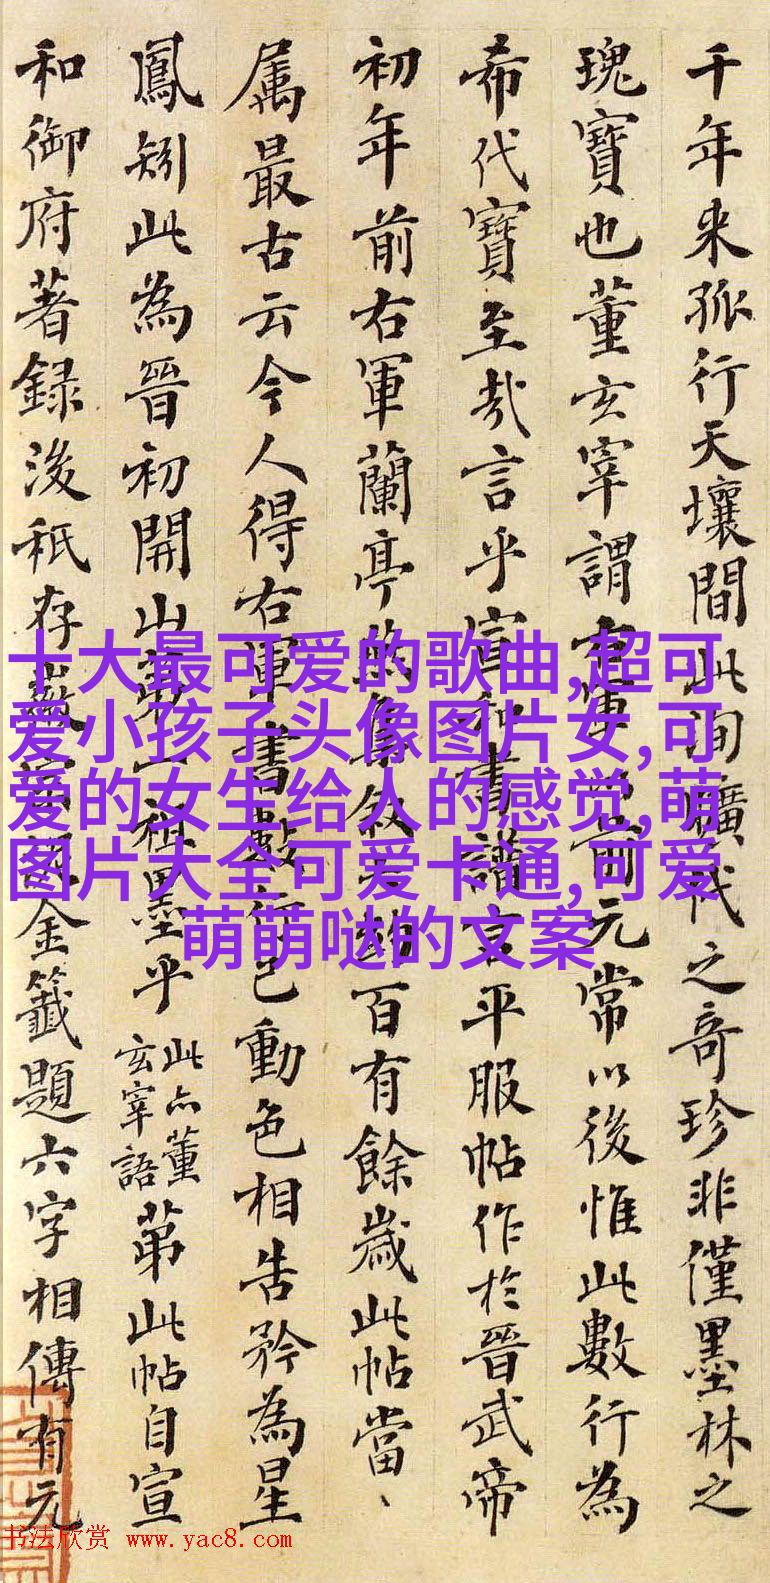 千年来孤行天壤間此洵曠代之奇珍非僅墨林之
瑰寶也董玄宰謂右軍前元常以後惟此數行為
希代寶至哉言乎宣和書譜言平服帖作於晉武帝
初年前右軍蘭亭集叙百有餘歲此帖當、
属最古云今人得右軍書數行已動色相告矜為星
鳳矧此為晉初開山第一祖墨乎此亦董玄宰語第此帖自宣
和御府著録後秪存金籤題六字相傳有元
十大最可爱的歌曲,超可
爱小孩子头像图片女,可
爱的女生给人的感觉,萌
图片大全可爱卡通,可爱
萌萌哒的文案
书法欣赏 www.yac8.com